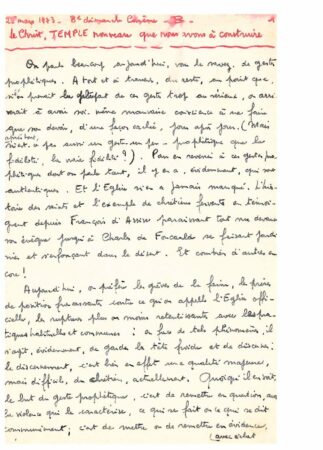 25 mars 1973 - 3e dimanche Carême - B -
le Christ, TEMPLE nouveau que nous avons à construire
On parle beaucoup aujourd'hui, vous le savez, de gestes
prophétiques. A tort et à travers, du reste, au point que,
si l'on prenait la plupart de ces gestes trop au sérieux, on arri-
verait à avoir soi-même mauvaise conscience à ne faire
que son devoir, d'une façon cachée, jour après jour. (Mais
n'est-ce pas aussi un geste un peu prophétique que la
fidélité, la vraie fidélité ?). Pour en revenir à ces gestes pro-
phétiques dont on parle tant, il y en a, évidemment, qui sont
authentiques. Et l'Eglise n'en a jamais manqué. L'his-
toire des saints et l'exemple de chrétiens fervents en témoi-
gnent depuis François d'Assise paraissant tout nu devant
son évêque jusqu'à Charles de Foucauld se faisant jardi-
nier et s'enfonçant dans le désert. Et combien d'autres en-
core !
Aujourd'hui, on préfère les grèves de la faim, les prises
de position fracassantes contre ce qu'on appelle l'Eglise offi-
cielle, les ruptures plus ou moins retentissantes avec les pra-
tiques habituelles et communes : en face de tels phénomènes, il
s'agit, évidemment, de garder la tête froide et de discerner ;
le discernement, c'est bien en effet une qualité majeure,
mais difficile, du chrétien, actuellement. Quoiqu'il en soit,
le but du geste prophétique, c'est de remettre en question, avec
la violence qui le caractérise, ce qui se fait ou ce qui se dit
communément ; c'est de mettre ou de remettre en évidence,
(avec éclat